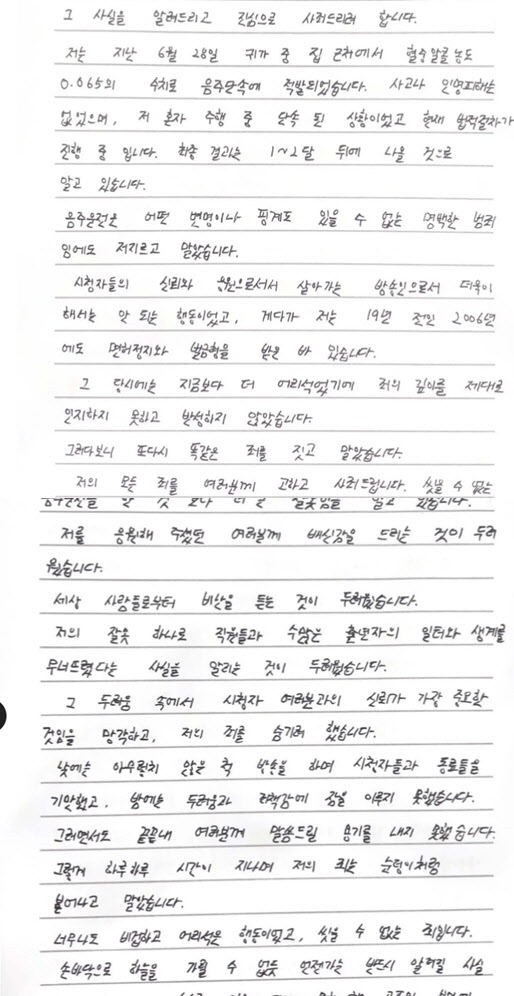 그 사실을 알려드리고 진심으로 사죄드리려 합니다.
저는 지난 6월 28일 귀가 중 집 근처에서 혈중알콜농도
0.065의 수치로 음주단속에 적발되었습니다. 사고나 인명피해는
없었으며, 저 혼자 주행 중 단속 된 상황이었고 현재 법적절차가
진행 중 입니다. 최종 결과는 1~2달 뒤에 나올 것으로
알고 있습니다.
음주운전은 어떤 변명이나 핑계도 있을 수 없는 명백한 범죄
임에도 저지르고 말았습니다.
시청자들의 신뢰와 응원으로서서 살아가는 방송인으로서 더욱이
해서는 안 되는 행동이었고, 게다가 저는 19년 전인 2006년
에도 면허정지와 벌금형을 받은 바 있습니다.
그 당시에는 지금보다 더 어리석었기에 죄의 깊이를 제대로
인지하지 못하고 반성하지 않았습니다.
그러다보니 또다시 똑같은 죄를 짓고 말았습니다.
저의 모든 죄를 여러분께 고하고 사죄드립니다. 씻을 수 없는
저를 응원해 주셨던 여러분께 배신감을 드리는 것이 두려
웠습니다.
세상 사람들로부터 비난을 듣는 것이 두려웠습니다.
저의 잘못 하나로 직원들과 수많은 출연자의 일터와 생계를
무너뜨렸다는 사실을 알리는 것이 두려웠습니다.
그 두려움 속에서 시청자 여러분과의 신뢰가 가장 중요한
것임을 망각하고, 저의 죄를 숨기려 했습니다.
낮에는 아무렇치 않은 척 방송을 하며 시청자들과 동료들을
기만했고, 밤에는 두려움과 죄책감에 잠을 이루지 못했습니다.
그러면서도 끝끝내 여러분께 말씀드릴 용기를 내지 못했습니다.
그렇게 하루하루 시간이 지나며 저의 죄는 눈덩이처럼
불어나고 말았습니다.
너무나도 비겁하고 어리석은 행동이었고, 씻을 수 없는 죄입니다.
손바닥으로 하늘을 가릴 수 없듯 언젠가는 반드시 알려질 사실